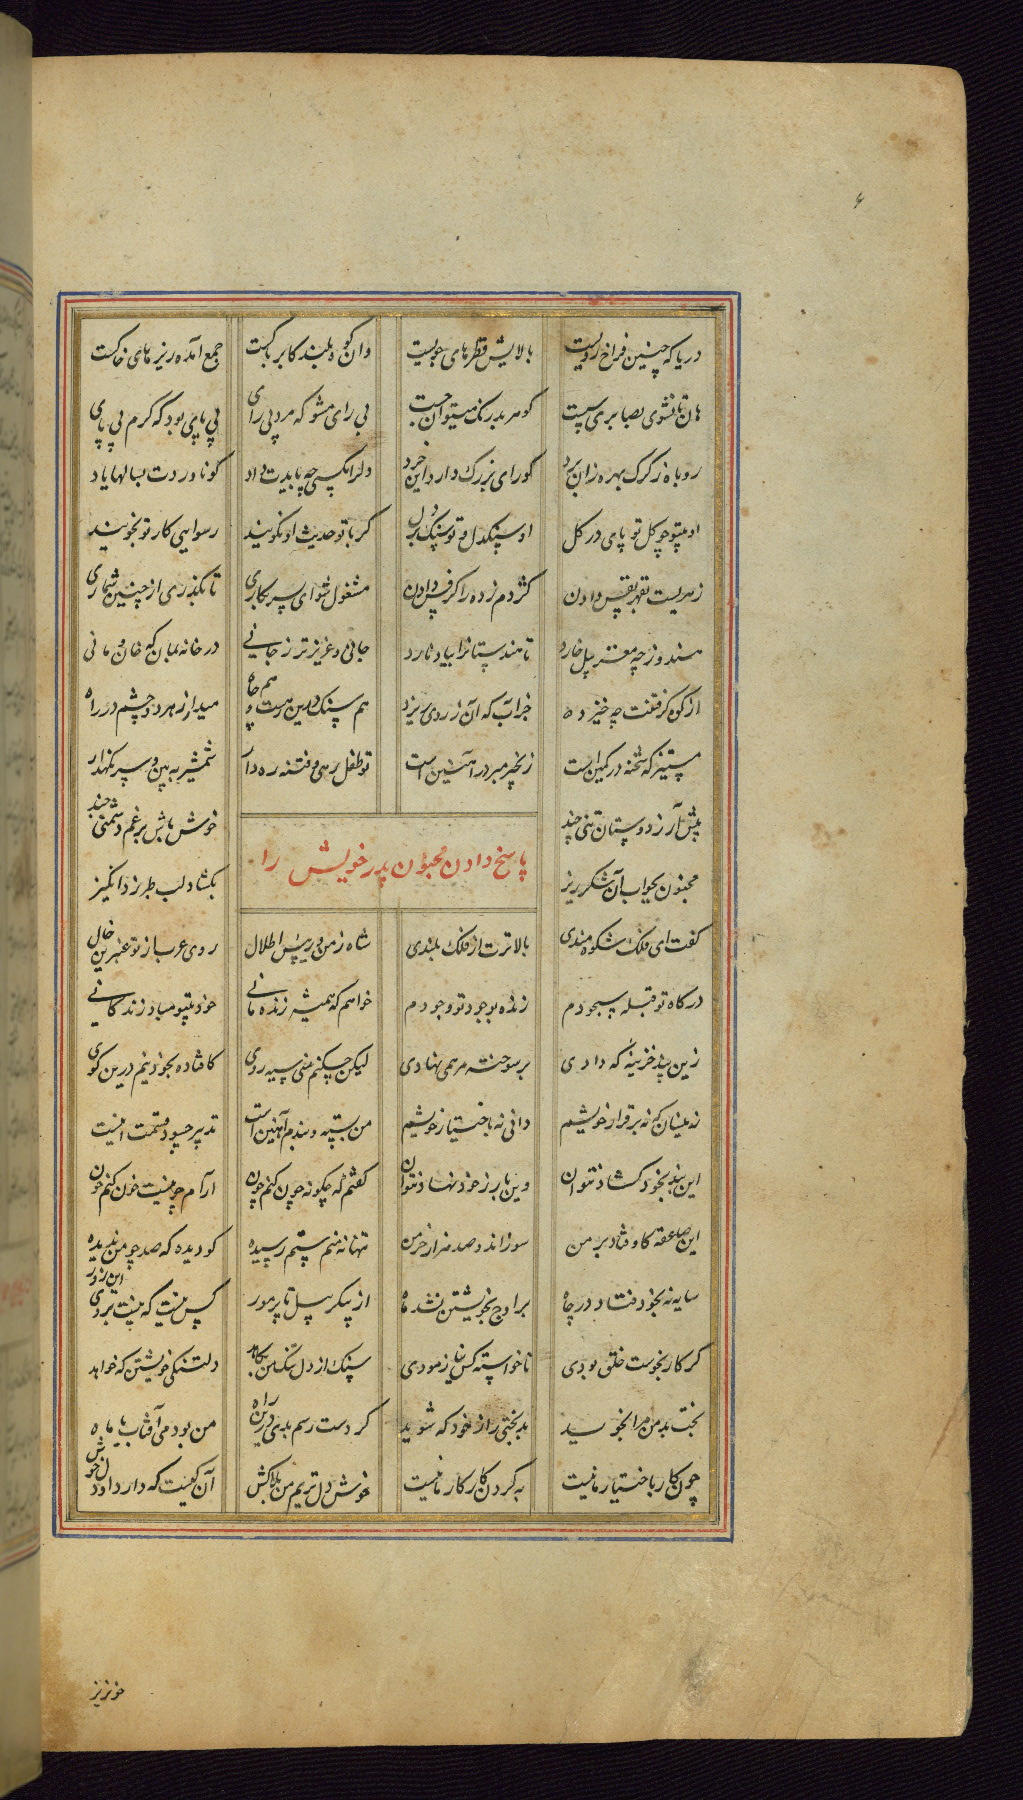 دریا که چنین فراخ رویست بالایش قطرهای جویست وان کوه بلند کابر ناکست جمع آمده ریزهای خاکست
هان تا نشوی بصابری سست گوهر بدرنک میتوان جست بی رای مشو که مرد بی رای بی پای بود که کرم بی پای
روباه ز کرک بهره زان برد کورای بزرک دارد این خرد دل را بکسی چه بایدت داد کو ناوردت بسالها یاد
او بیتو چو کل تو پای در کل او سنکدل و تو سنک بر دل کر با تو حدیث او نکویند رسوایی کار تو بجویند
زهریست بقهر نفس دادن کژدم زده را کرفس دادن مشغول شو ای پسر بکاری تا بکذری از چنین شماری
هندو ز چه مغز پیل خارد تا هندستانرا بیاد نارد جانی و عزیزتر ز جانی در خانه بمان که خان و مانی
از کوه کرفتنت چه خیزد جز آب که آن ز روی ریزد هم سنک درین رهست و هم چاه میدار ز هر دو چشم در راه
مستیز که شحنه در کمین است زنجیر مبر در آهنین است تو طفل رهی و فتنه ره دار شمشیر ببین و سر نکهدار
پیش آر ز دوستان تنی چند خوش باش برغم دشمنی چند
پاسخ دادن مجنون پدر خویش را
مجنون بجواب آن شکر ریز بکشاد لب طبرزد انکیز
کفت ای فلک شکوه مندی بالاترت از فلک بلندی شاه زمن و رییس اطلال روی عرب از تو عنبرین خال
درکاه تو قبله سجودم زنده بوجود تو وجودم خواهم که همیشه زنده مانی خود بیتو مباد زندکانی
زین پند خزینه که دادی بر سوخته مرهمی نهادی لیکن چکنم من سیه روی کافتاده بخود نیم درین کوی
زینسان که نه بر قرار خویشم دانی نه باختیار خویشم من بسته و بندم آهنین است تدبیر چه سود قسمت اینست
این بند بخود کشاد نتوان وین بار ز خود نهاد نتوان کفتم که چکونه چون کنم چون آرام چو نیست خون کنم خون
این صاعقه کاوفتاد بر من سوزاند و صد هزار خرمن تنها نه منم ستم رسیده کو دیده که صد چو من ندیده
سایه نه بخود فتاد در چاه بر اوج بخویشتن نشد ماه از پیکر پیل تا پر مور کس نیست که نیست بروی این زور
کر کار بخوست خلق بودی ناخواسته کس نیازمودی سنک از دل تنک من بکاهد دلتنکی خویشتن که خواهد
بخت بد من مرا بجوید بدبختی را ز خود که شوید کر دست رسم بدی درین راه من بودمی آفتاب یا ماه
چون کار باختیار ما نیست به کردن کار کار ما نیست خوش دل نزیم من بلاکش آن کیست که دارد او دل خوش
خونریز